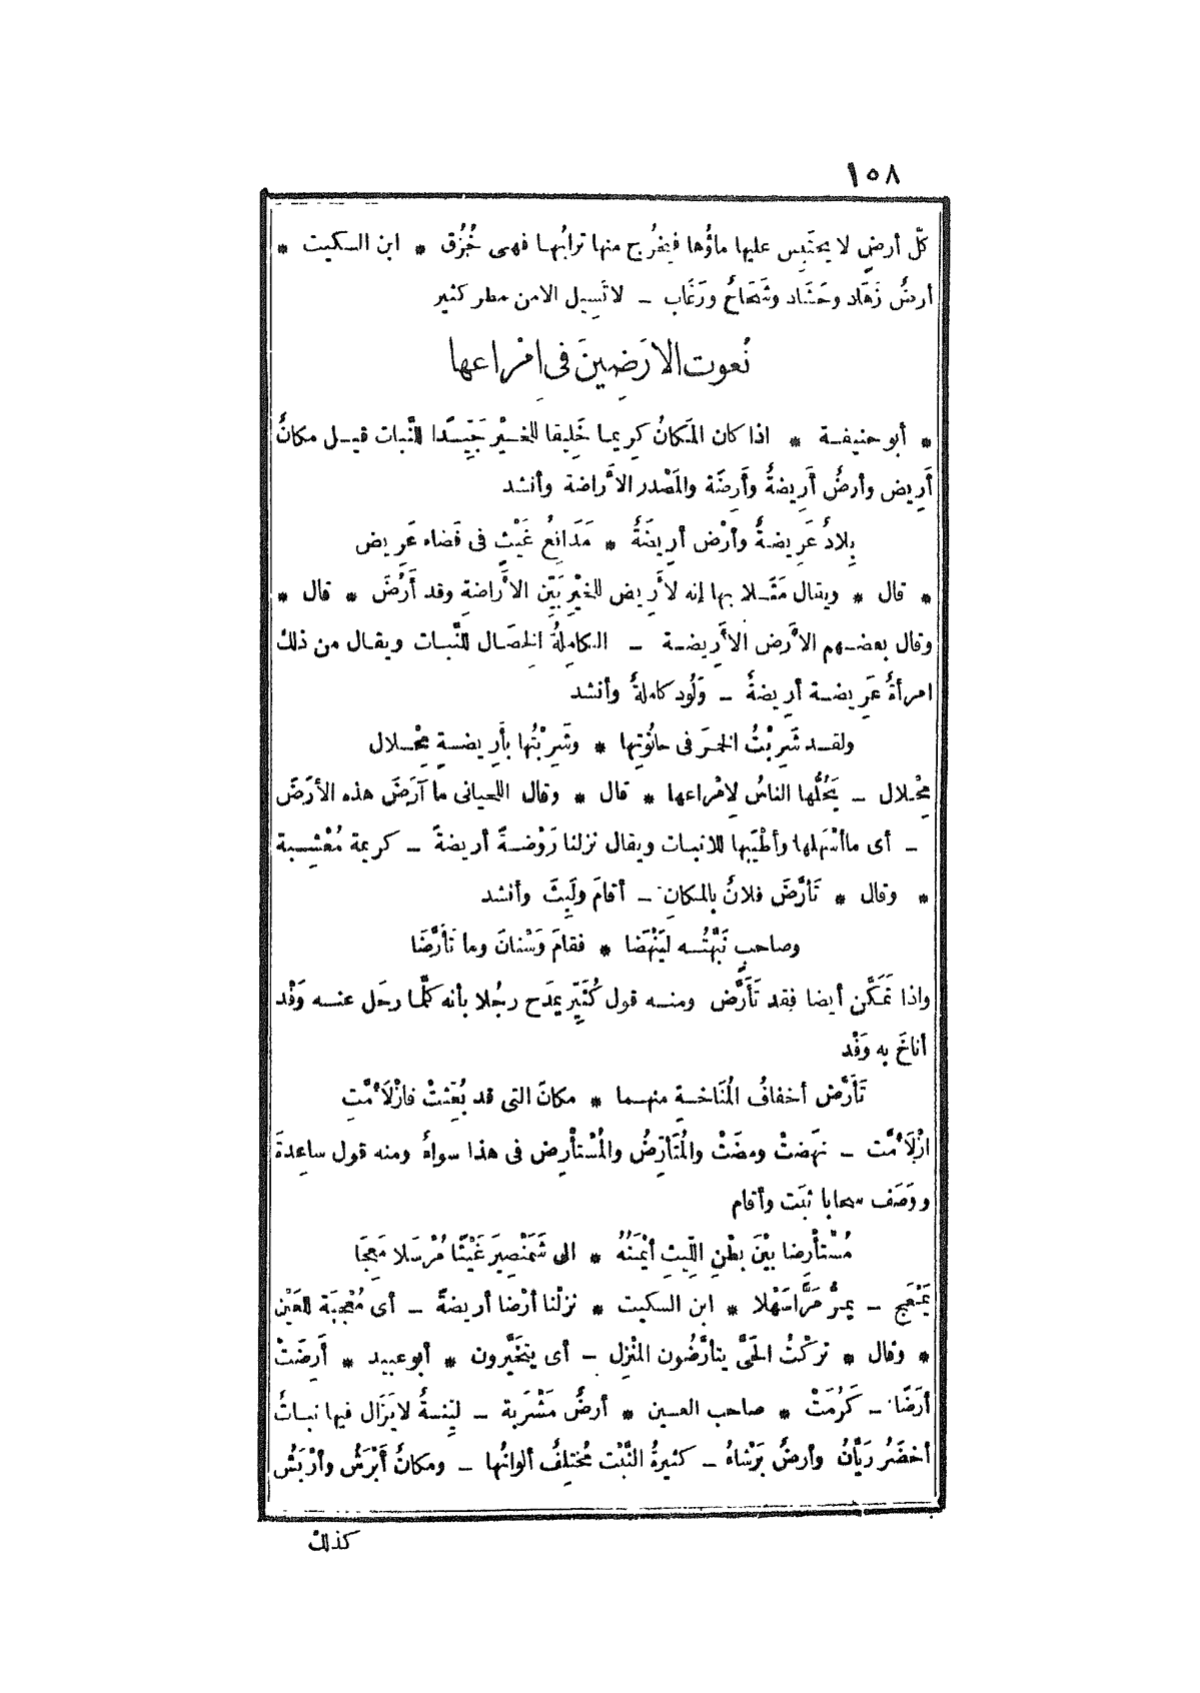 ١٥٨
كلّ أرضٍ لا يحتَبِس عليها ماؤُها فيخرُج منها ترابُها فهى خُزُق * ابن السكيت *
أرضٌ زَهَاد وحَشَاد وشَحَاحٌ ورَغَاب ــ لا تَسِيل الا من مطر كثير
نُعوت الارَضِينَ فى اِمْراعها
* أبو حنيفة * اذا كان المَكانُ كرِيما خَلِيقا للخَيْر جَيِّدًا للنَّبات قيل مكانٌ
أَرِيض وأرضٌ أَرِيضةٌ وأَرِضَة والمَصْدر الأَراضة وأنشد
بِلادٌ عَرِيضةٌ وأرْض أرِيضَةٌ * مَدَافِعُ غَيْثٍ فى فَضاء عَرِيض
* قال * ويقال مَثَلا بها إنه لأَرِيض للخَيْرِ بَيِّن الأَراضةِ وقد أَرُضَ * قال *
وقال بعضهم الأرض الأَرِيضة ــ الكامِلةُ الخِصَال للنَّبات ويقال من ذلك
امرأةٌ عَرِيضة أرِيضةٌ ــ وَلُود كاملةٌ وأنشد
ولقد شَرِبْتُ الخمرَ فى حانُوتِها * وشَرِبْتُها بأَرِيضةٍ مِحْلال
مِحْلال ــ يَحُلُّها الناسُ لِامْراعها * قال * وقال اللحيانى ما آرَضَ هذه الأرضَ
ــ أى ما أسْهَلها وأَطْيَبها للانبات ويقال نزلنا رَوْضةً أريضةً ــ كريمة مُعْشِبة
* وقال * تَأَرَّضَ فلانٌ بالمكانِ ــ أقامَ ولَبِثَ وأنشد
وصاحبٍ نَبَّهْتُه ليَنْهَضا * فقامَ وَسْنانَ وما تَأَرَّضَا
واذا تَمَكَّن أيضا فقد تَأَرَّض ومنه قول كُثَيِّر يمدَح رجُلا بأنه كلَّما رحَل عنه وَفْد
أناخَ به وَفْد
تَأَرَّض أخفافُ المُنَاخةِ منهما * مكانَ التى قد بُعِّثتْ فازْلَأَمَّتِ
ازْلَأَمَّت ــ نهَضتْ ومضَتْ والمُتَأَرِّضُ والمُسْتأْرِض فى هذا سواءٌ ومنه قول ساعِدةَ
ووَصَف سحابا ثبَت وأقام
مُسْتأْرِضا بيْنَ بطْنِ اللِّيثِ أَيْمَنُهُ * الى شَمَنْصِيرَ غَيْثًا مُرْسَلا مَعِجَا
يَمْعَج ــ يمرُّ مَرًّا سَهْلا * ابن السكيت * نزلْنا أرْضا أريضةً ــ أى مُعْجِبَة للعَيْن
* وقال * تركْتُ الحَىَّ يتأرَّضُون المنْزِل ــ أى يتخَيَّرون * أبو عبيد * أَرِضَتْ
أرَضًا ــ كَرُمَتْ * صاحب العين * أرضٌ مَشْرَبة ــ ليِّنةٌ لا يَزَال فيها نباتٌ
أخضَرُ رَيَّانُ وأرضٌ بَرْشاءُ ــ كثيرةُ النَّبْت مُختلِفٌ ألوانُها ــ ومكانٌ أَبْرَشُ وأَرْبَشُ
كذلك